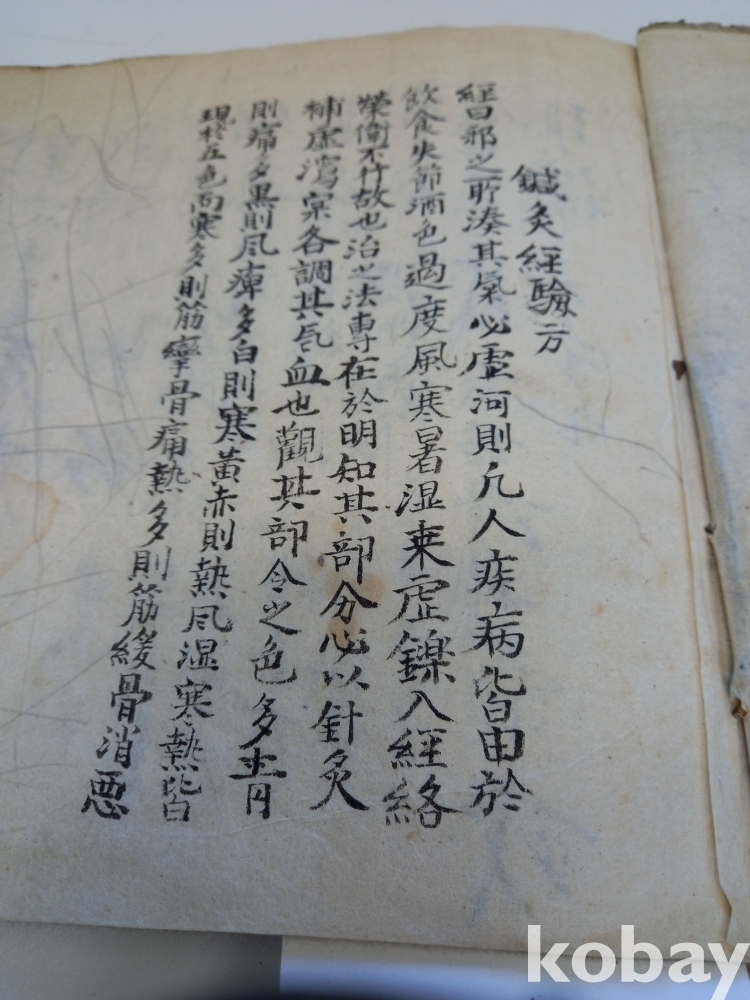 鍼灸經驗方
經曰邪之所湊其氣必虛河則凡人疾病皆由於
飮食失節酒色過度風寒暑湿乗虛鑠入經絡
榮衛不行故也治之法專在於明知其部分必以針灸
補虛瀉実各調其気血也觀其部令之色多青
則痛多黒則風痺多白則寒黃赤則熱風湿寒熱皆
現於五色而寒多則筋攣骨痛熱多則筋緩骨消悪
kobay